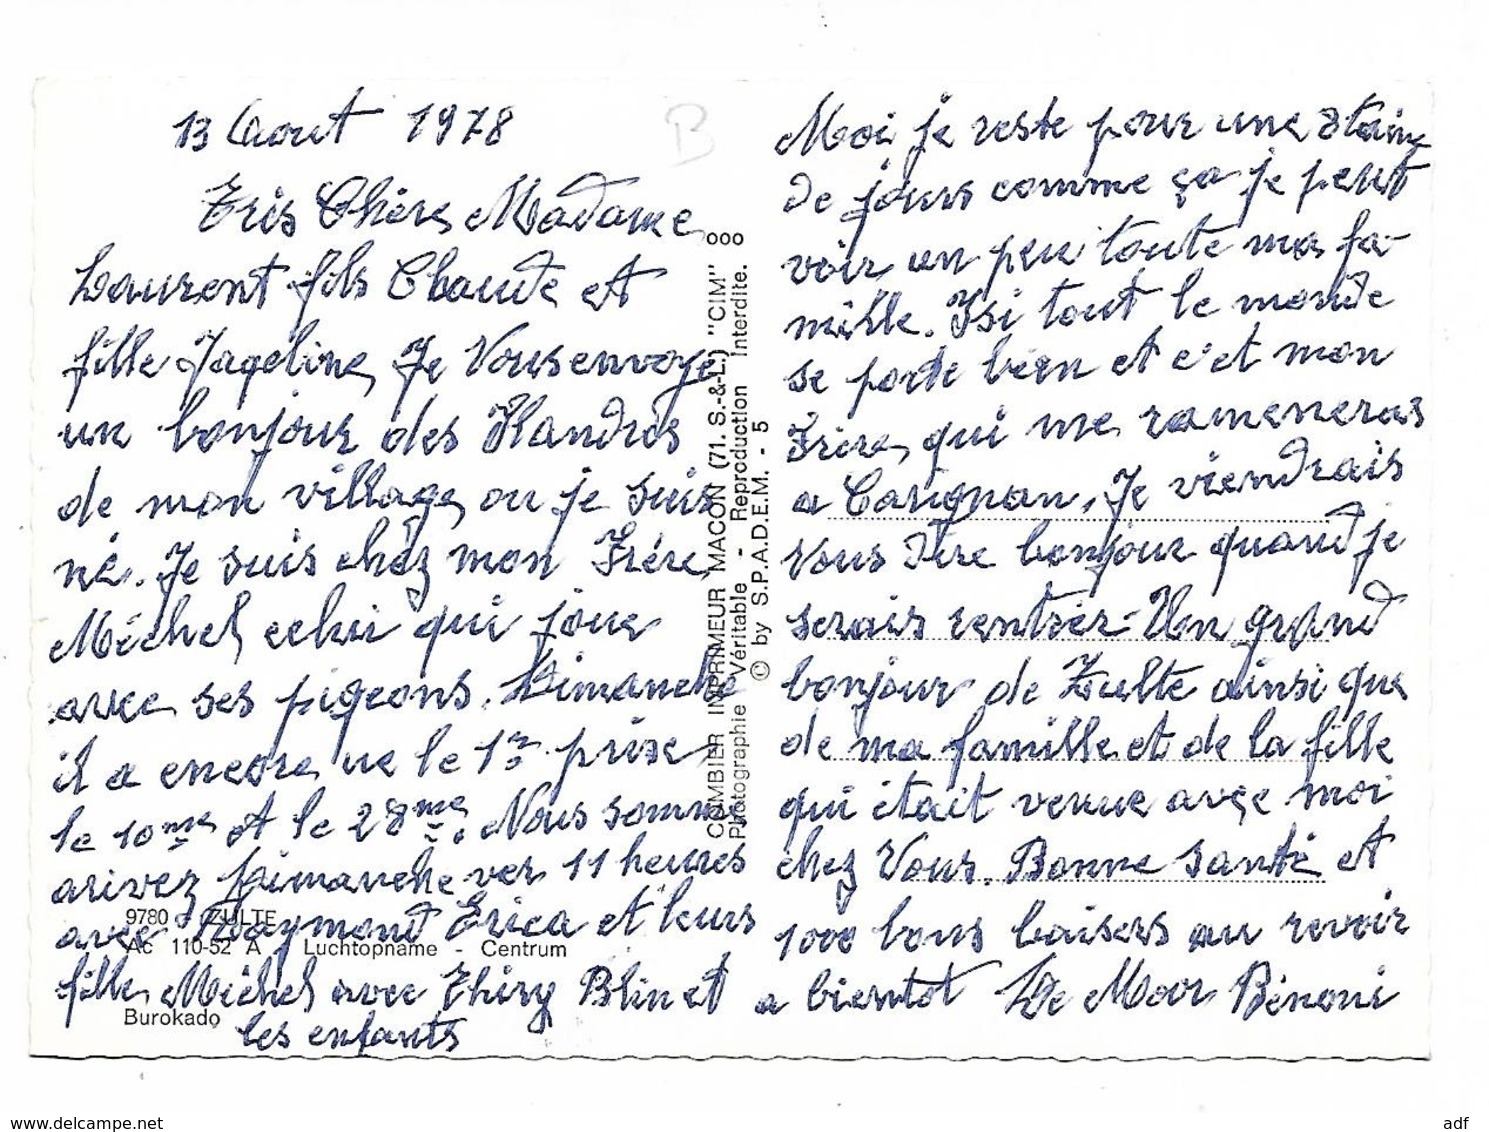 13 Aout 1978
B
Trés Chére Madame
Laurent fils Claude et
fille Jaqeline, Je Vous envoye
un bonjour des Flandres
de mon village, ou je suis
né. Je suis chez mon Frére
Michel celui qui joue
avec ses pigeons. Dimanche
il a encore ue le 1er prix
le 10me et le 28me. Nous somme
arivez Dimanche ver 11 heures
avec Raymond Erica et leurs
fille, Michel avec Thiry Blin et
les enfants
9780 ZULTE
Ac 110-52 A Luchtopname - Centrum
Burokado
COMBIER IMPRIMEUR MACON (71. S.-&-L.) "CIM" ooo
Photographie Véritable - Reproduction Interdite.
© by S.P.A.D.E.M. - 5
Moi je reste pour une
de jours comme ça je peut
voir un peu toute ma fa-
mille. Isi tout le monde
se porte bien et c'et mon
Frére, qui me rameneras
a Carignan. Je viendrais
Vous dire bonjour quand je
serais rentrer - Un grand
bonjour de Zulte ainsi que
de ma famille et de la fille
qui était venue avec moi
chez Vous. Bonne santé et
1000 bons baisers au revoir
a bientot De Moor Bénoni
delcampe.net
adf